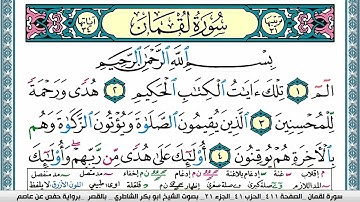 سُورَةُ لُقْمَانَ
بِسْمِ ٱللَّهِ ٱلرَّحْمَٰنِ ٱلرَّحِيمِ
الٓمٓ ١ تِلْكَ ءَايَٰتُ ٱلْكِتَٰبِ ٱلْحَكِيمِ ٢ هُدًى وَرَحْمَةً
لِّلْمُحْسِنِينَ ٣ ٱلَّذِينَ يُقِيمُونَ ٱلصَّلَوٰةَ وَيُؤْتُونَ ٱلزَّكَوٰةَ وَهُم
بِٱلْءَاخِرَةِ هُمْ يُوقِنُونَ ٤ أُو۟لَٰٓئِكَ عَلَىٰ هُدًى مِّن رَّبِّهِمْ وَأُو۟لَٰٓئِكَ
سورة لقمان . الصفحة ٤١١ . الحزب ٤١ . الجزء ٢١ بصوت الشيخ ابو بكر الشاطري بالقصر رواية حفص عن عاصم